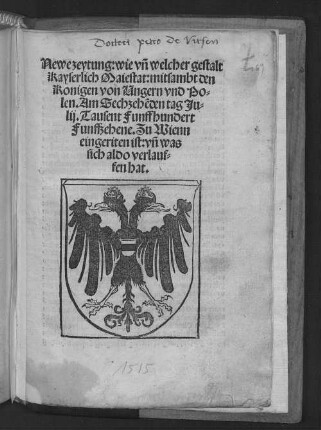 Doctori petro de
Newe zeytung: wie vn̄ welcher gestalt
Kayserlich Maiestat: mitsambt den
Konigen von Ungern vnd Po-
len. Am Sechzehēden tag Ju-
lij. Tausent Funffhundert
Funffzehene. Zu Wienn
eingeriten ist: vn̄ was
sich aldo verlauf-
fen hat.
1515